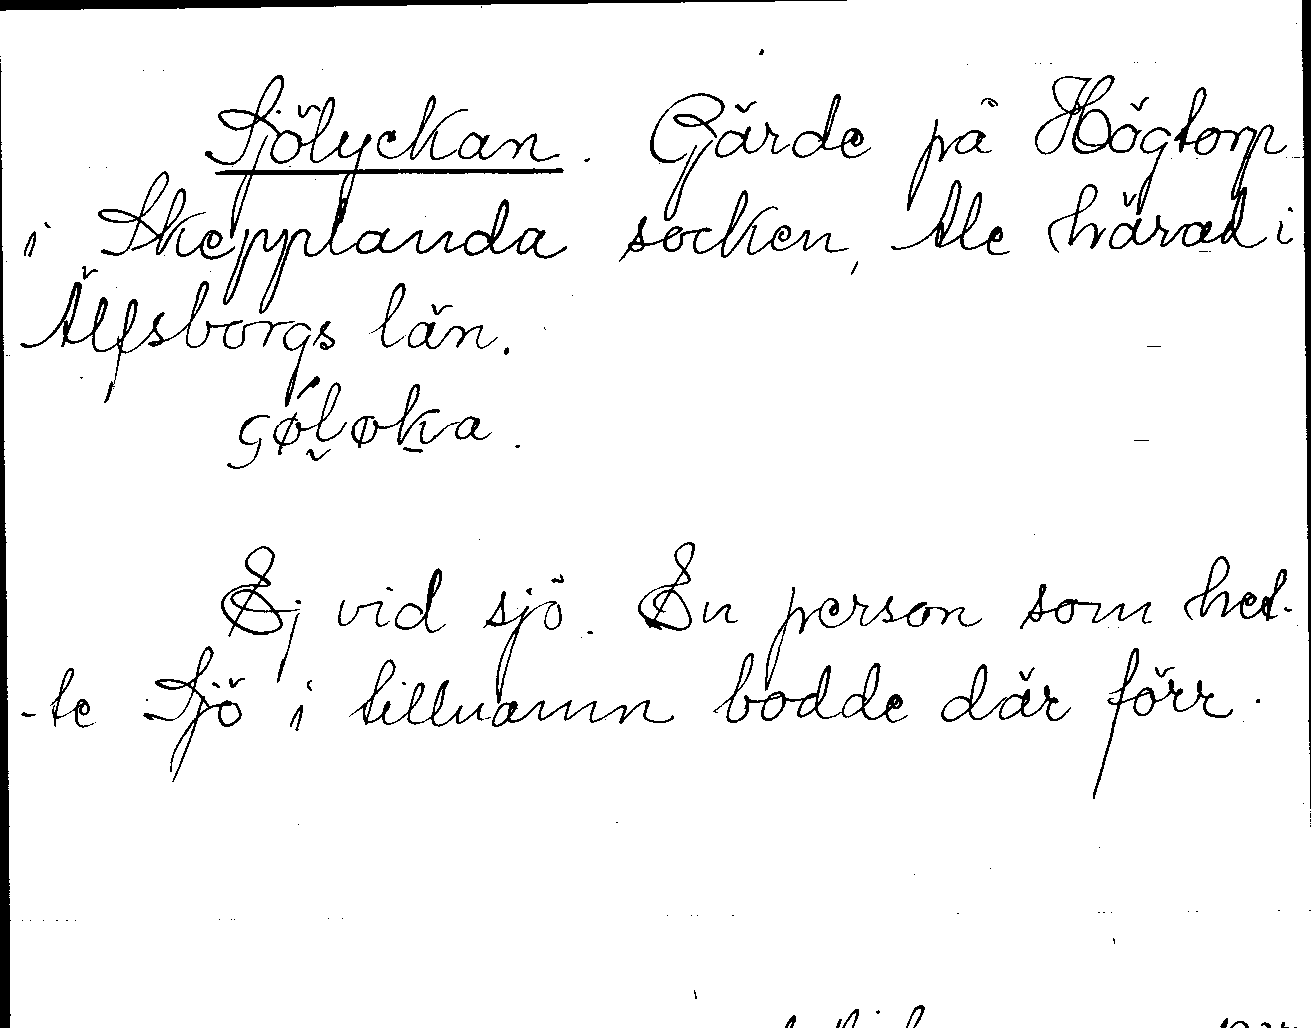 Sjölyckan. Gärde på Högtorp
i Skepplanda socken, Ale härad i
Älfsborgs län.
ʂǿl̬øk̠a.
Ej vid sjö. En person som het-
-te Sjö i tillnamn bodde där förr.